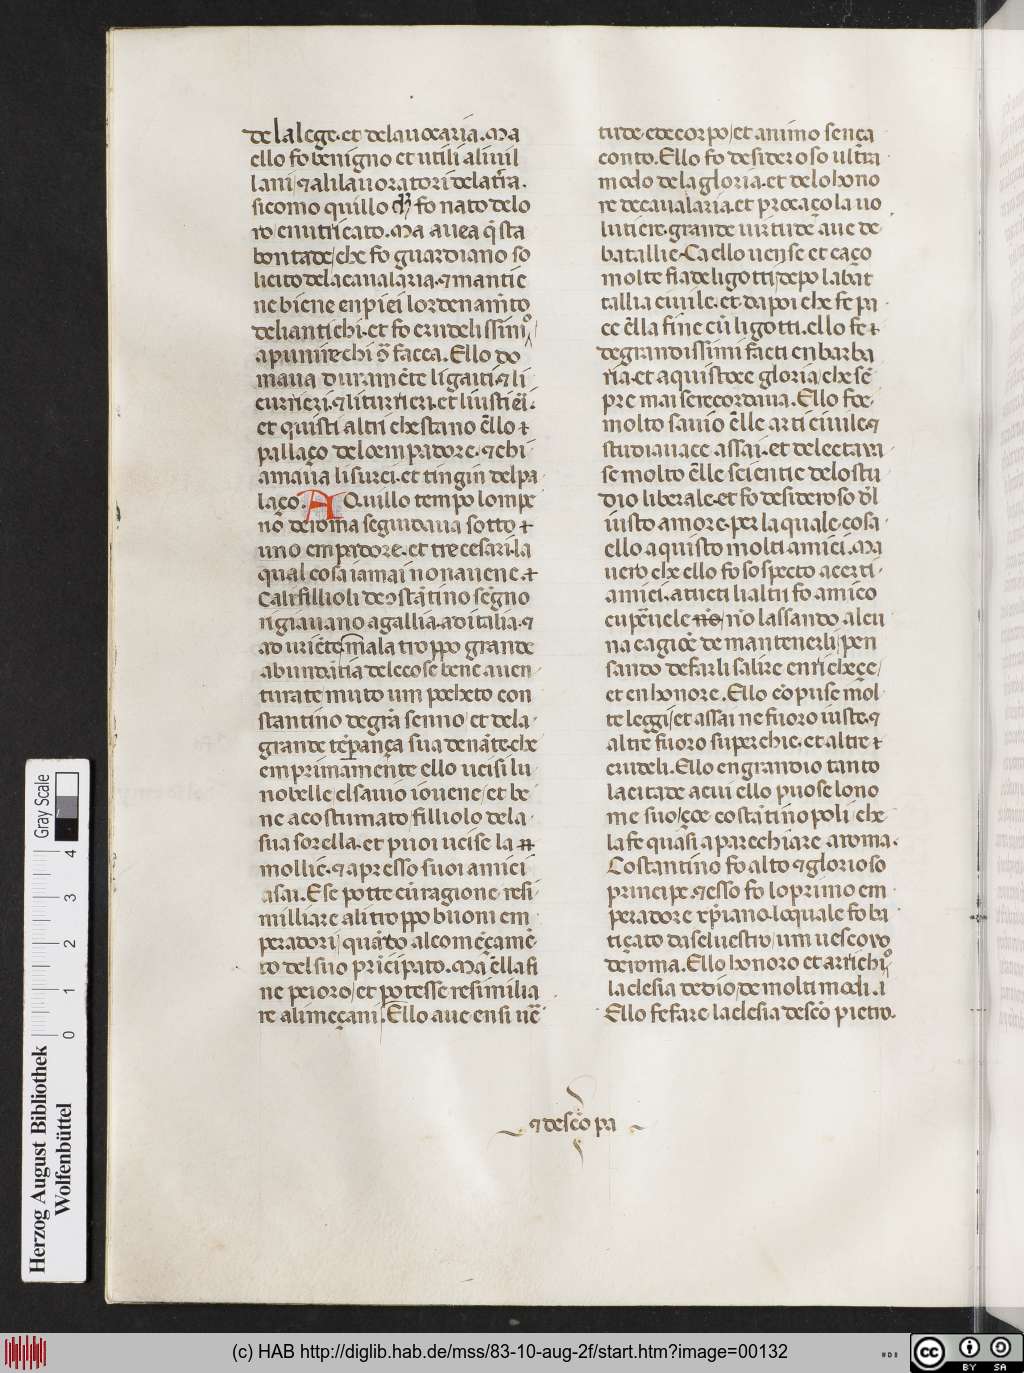 de la lege. et de la uocaria. Ma
ello fo benigno et utili ali uil
lani / ⁊ ali lauoratori de la tr̄ra.
sicomo quillo ch̄ fo nato de lo
ro e nutricato. Ma auea q̄sta
bontade / che fo guardiano so
licito de la caualaria. ⁊ mantie
ne biene en piei lordenam̄to
deli antichi. et fo crudelissimo /
a punire chi ō facea. Ello do
maua duram̄ete li gaiti ⁊ li
currieri. ⁊ li turrieri. et li usti ei.
et quisti altri che stano ēllo
pallaço de loemperadore. ⁊ chi
amaua li surci. et tingin del pa
laço. A Quillo tempo lompe
no de roma segundaua sotto
uno emperadore. et tre cesari. la
qual cosa iamai non auene.
Cali fillioli de ɔstātino segno
rigiauano a gallia. ad italia. ⁊
ad oriēte. ma la troppo grande
abundātia dele cose bene auen
turate muto um pocheto con
stantino de grā senno / et dela
grande tēperança sua denāte. che
emprimamente ello ucisi lu
nobelle el sauio iouene / et be
ne acostumato filliolo dela
sua sorella. et puoi ucise la
mollie. ⁊ apresso suoi amici
asai. E se potte cū ragione resi
milliare ali troppo buoni em
peradori / quādo alcomēçamē
to del suo prīcipato. Ma ēlla fi
ne peioro / et potesse resimilia
re ali meçani. Ello aue en si uē
tude e de corpo / et animo sença
conto. Ello fo desideroso ultra
modo de la gloria. et de lo hono
re de caualaria. et procaço la uo
lutiere. grande uirtude aue de
batallie. Ca ello uense et caço
molte fiade li gotti / depo la bat
tallia ciuile. et da poi che fe pa
ce ēlla fine cū li gotti. ello fe
de grandissimi facti en barba
ria. et aquistoce gloria / che sē
pre mai se recordaua. Ello foe
molto sauio ēlle arti ciuile ⁊
studiauace assai. et delectaua
se molto ēlle scientie de lo stu
dio liberale. et fo desideroso d̄l
iusto amore. per la quale cosa
ello aquisto molti amici. Ma
uero che ello fo sospecto a certi
amici. a tucti li altri fo amico
no lassando alcu
na cagiōe de mantenerli / pen
sando de farli salire en richeçe /
et en honore. Ello cōpuse mol
te leggi / et assai ne fuoro iuste. ⁊
altre fuoro superchie. et altre
crudeli. Ello engrandio tanto
la citade a cui ello puose lono
me suo / çoe costātinopoli / che
la fe quasi aparechiare a roma.
Costantino fo alto ⁊ glorioso
principe. ⁊ esso fo lo primo em
peradore xp̄iano. loquale fo ba
tiçato da seluestro / um uescouo
de roma. Ello honoro et arrichio
la clesia de dio / de molti modi.
Ello fe fare la clesia de scō pietro.
⁊ de scō pa
Gray Scale
4
3
2
1
0
Herzog August Bibliothek
Wolfenbüttel
(c) HAB http://diglib.hab.de/mss/83-10-aug-2f/start.htm?image=00132
cc BY SA